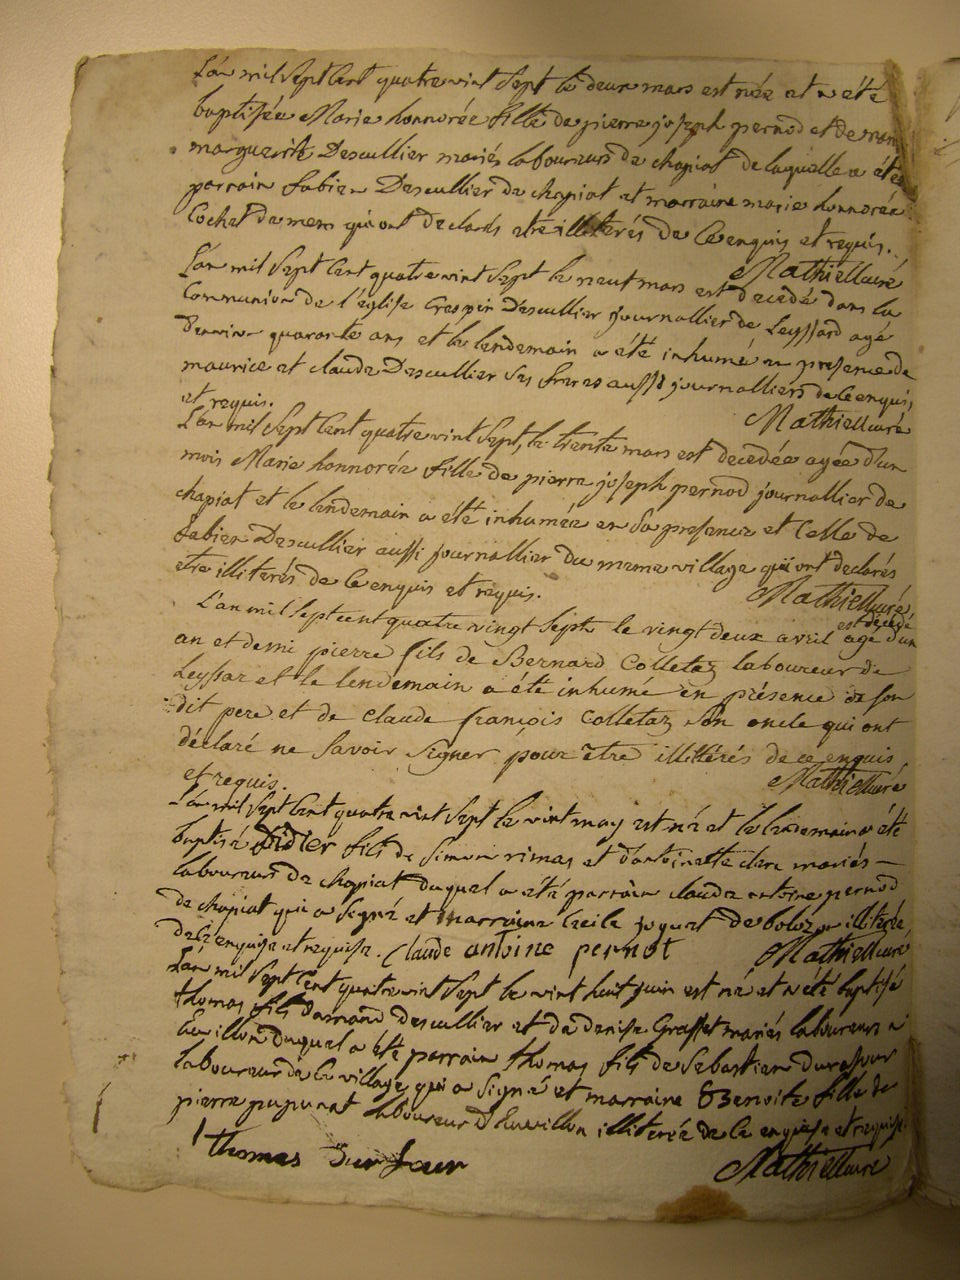 L'an mil Sept Cent quatre vint Sept le deux mars est née et a été
baptisée Marie honnorée fille de pierre joseph pernod et de
marguerite Descullier mariés laboureurs de chapiat de laquelle a été
parrain fabien Descullier de chapiat et marraine marie honnorée
Cochet de mem qui ont declarés etre illiterés de ce enquis et requis.
Mathieu curé
L'an mil Sept Cent quatre vint Sept le neuf mars est decedé dans la
Communion de l'église Crespin Descullier journallier de Leyssard agé
denviron quarante ans et le lendemain a été inhumé en presence de
maurice et claude Descullier ses freres aussi journalliers de ce enquis
et requis.
Mathieu curé
L'an mil Sept Cent quatre vint Sept, le trente mars est decedée agée d'un
mois Marie honnorée fille de pierre joseph pernod journallier de
chapiat et le lendemain a été inhumée en sa presence et Celle de
fabien Descullier aussi journallier du meme village qui ont declarés
etre illiterés de ce enquis et requis.
Mathieu curé
L'an mil sept cent quatre vingt Sept le vingt deux avril est décédé agé d'un
an et demi pierre fils de Bernard Colletaz laboureur de
Leyssar et le lendemain a été inhumé en présence de son
dit pere et de claude françois Colletaz son oncle qui ont
déclaré ne savoir signer pour être illitérés de ce enquis
et requis.
Mathieu curé
L'an mil Sept Cent quatre vint Sept le vint may est né et le lendemain a été
baptisé Didier fils de Simon rimas et d'antoinette clerc mariés
laboureurs de chapiat duquel a été parrain claude antoine pernod
de chapiat qui a signé et marraine Cecile joguet de bolozon illiterée
de ce enquise et requise. Claude antoine pernot
Mathieu curé
L'an mil Sept Cent quatre vint Sept le vint huit juin est né et a été baptisé
thomas fils darmand descullier et de denise Grasset mariés laboureurs a
duquel a été parrain thomas fils de Sebastien dursour
laboureur de ce village qui a signé et marraine Benoite fille de
pierre pupunat laboureur illiterée de ce enquise et requise.
thomas Dursour
Mathieu curé